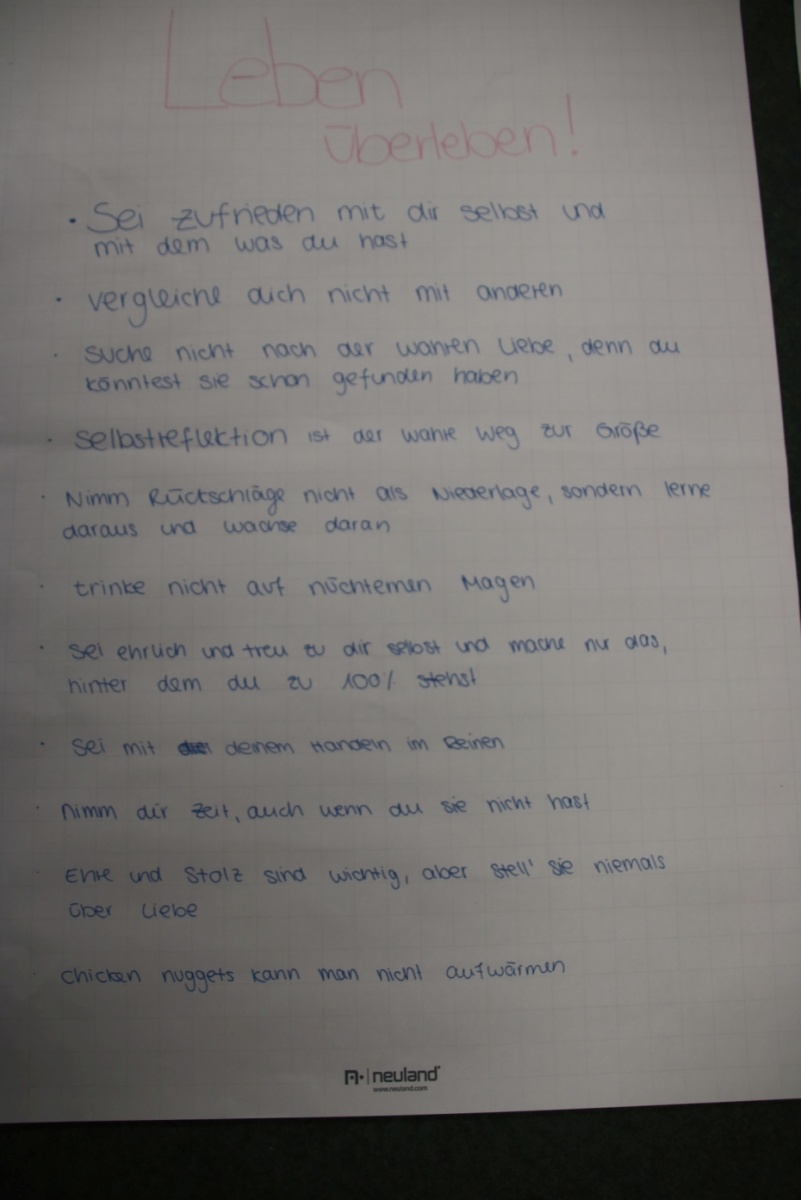 Leben
überleben!
• Sei zufrieden mit dir selbst und
mit dem was du hast
• vergleiche dich nicht mit anderen
• suche nicht nach der wahren Liebe, denn du
könntest sie schon gefunden haben
• Selbstreflektion ist der wahre Weg zur Größe
• Nimm Rückschläge nicht als Niederlage, sondern lerne
daraus und wachse daran
• trinke nicht auf nüchternen Magen
• Sei ehrlich und treu zu dir selbst und mache nur das,
hinter dem du zu 100% stehst
• Sei mit deinem Handeln im Reinen
• Nimm dir Zeit, auch wenn du sie nicht hast
• Ehre und Stolz sind wichtig, aber stell' sie niemals
über Liebe
• Chicken nuggets kann man nicht aufwärmen
neuland
www.neuland.com